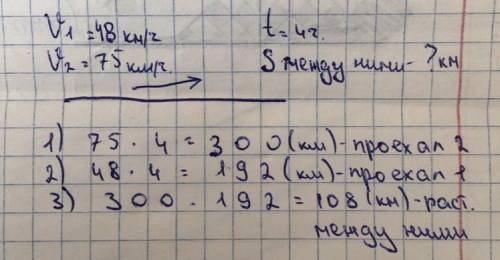 V₁ = 48 км/ч t = 4ч.
V₂ = 75 км/ч. S между ними - ? км
1) 75 · 4 = 300 (км) - проехал 2
2) 48 · 4 = 192 (км) - проехал 1
3) 300 - 192 = 108 (км) - раст.
между ними